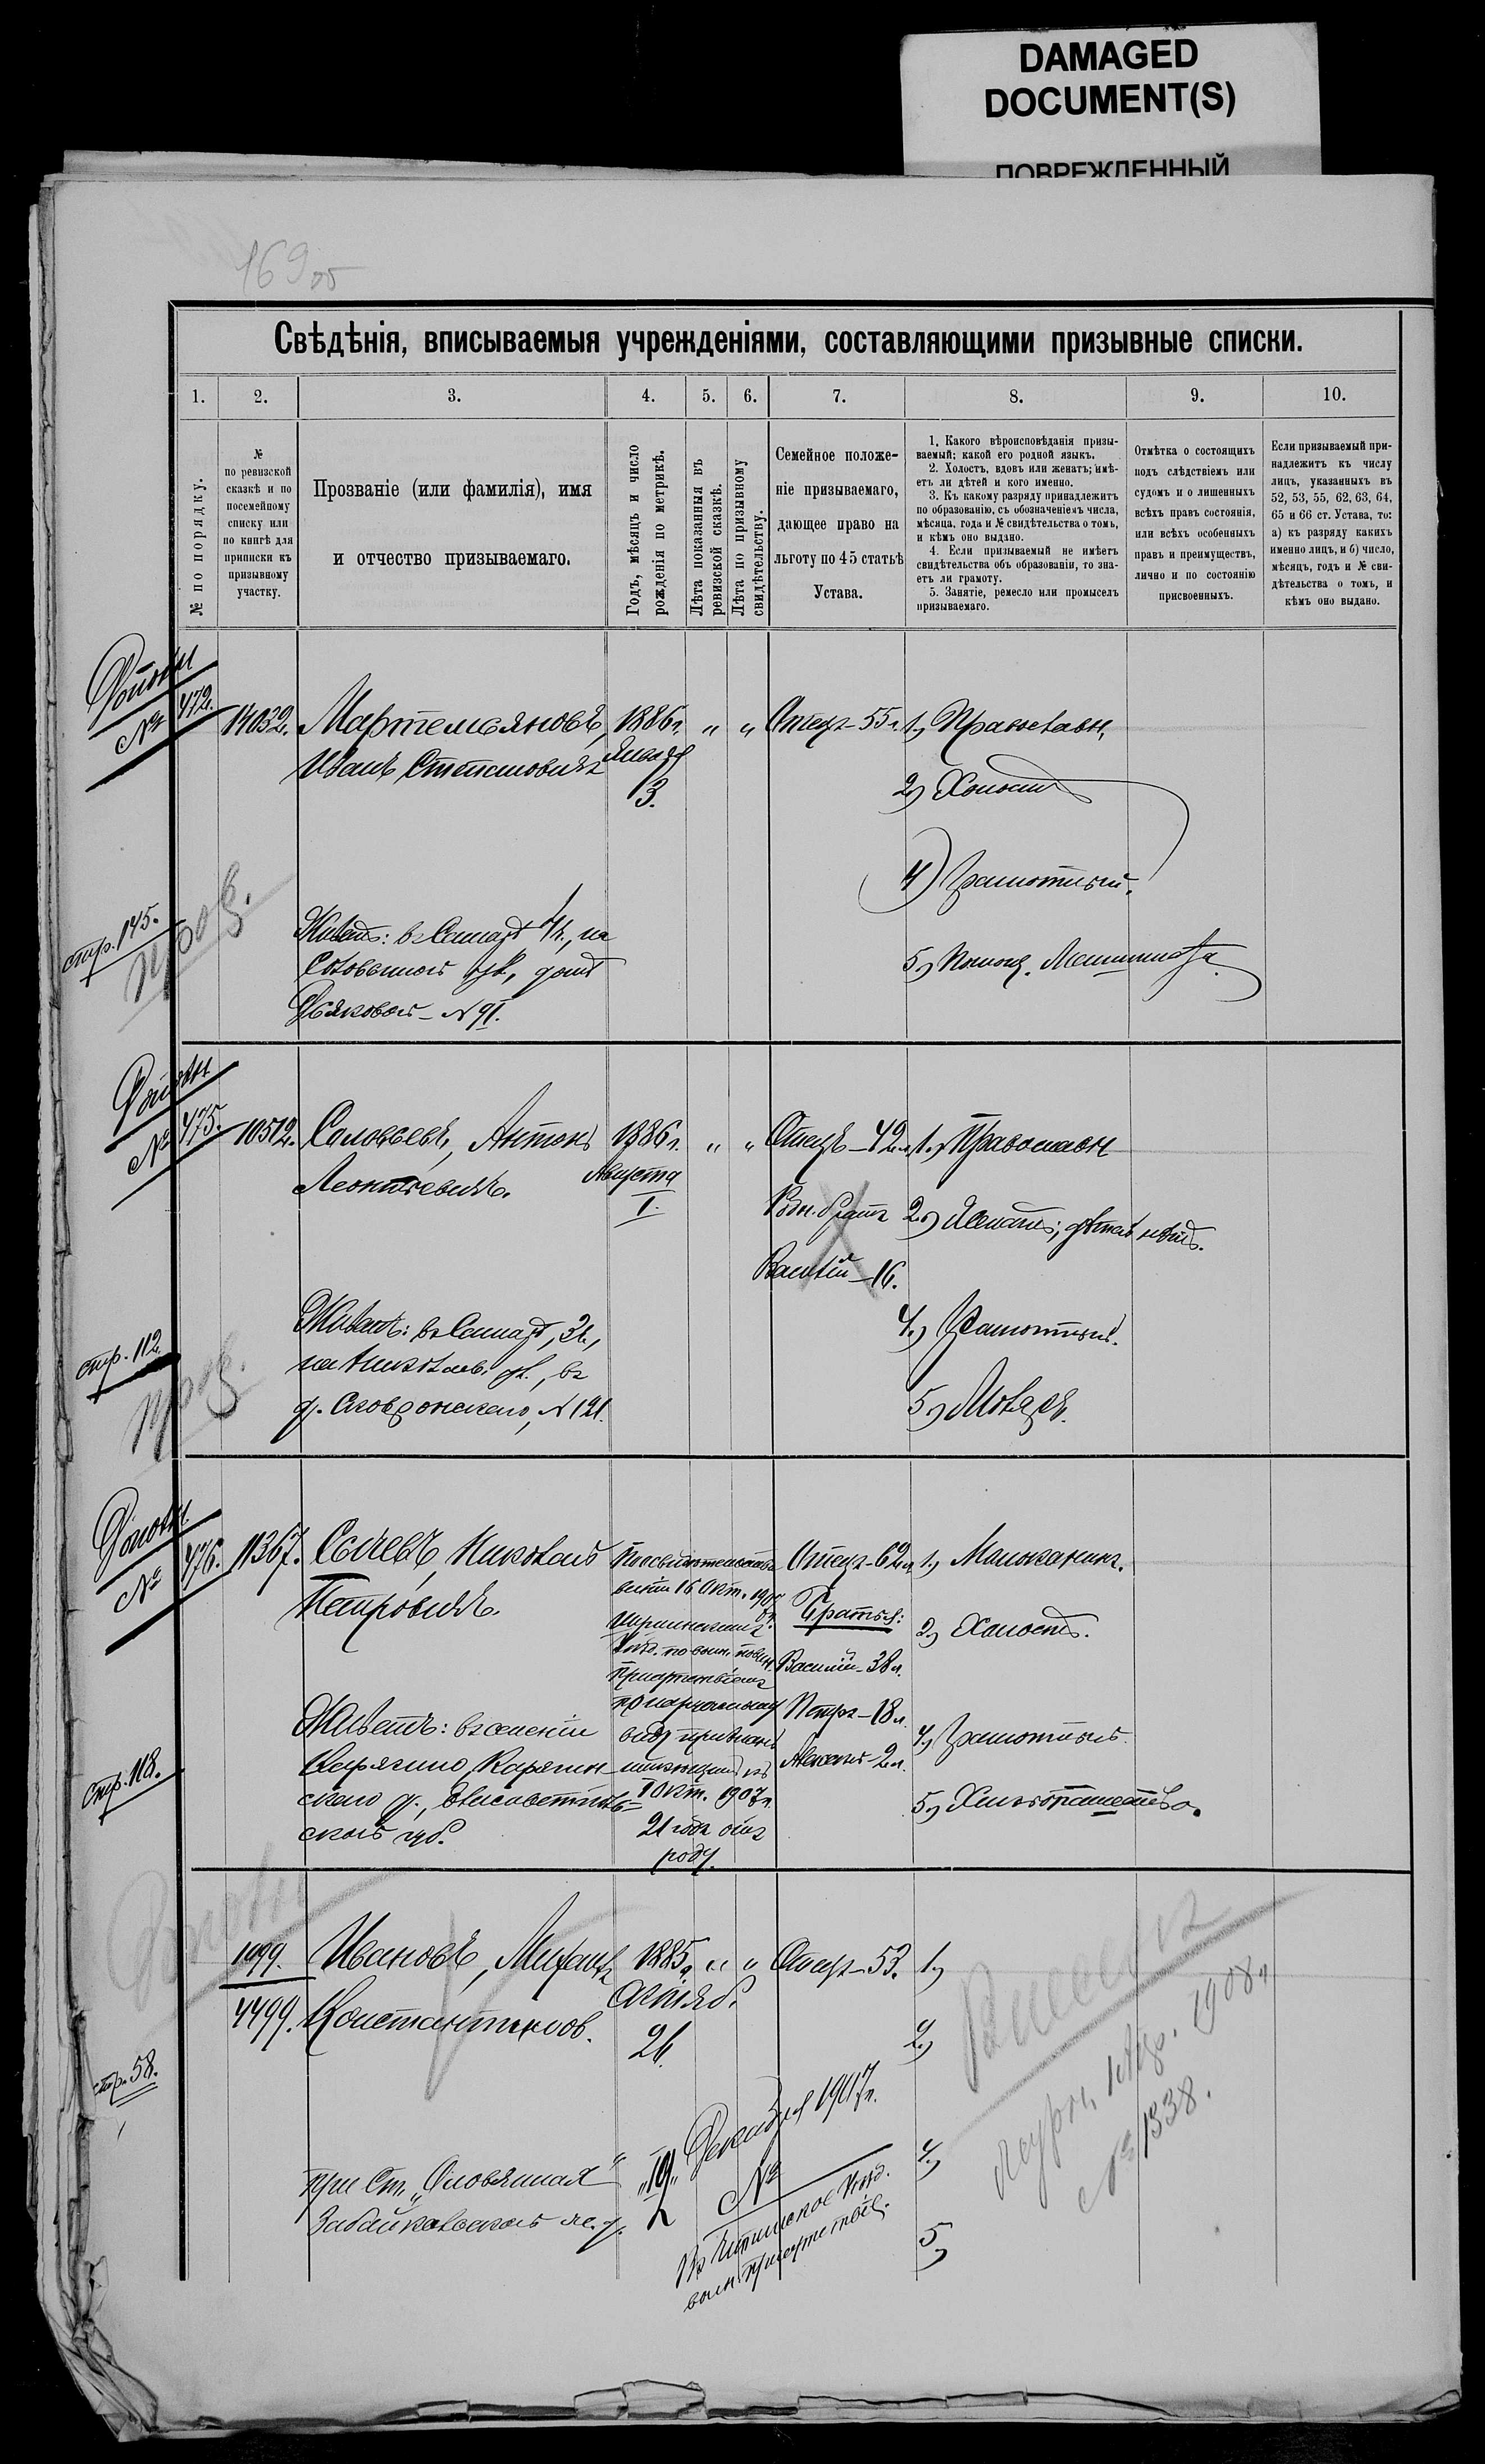 DAMAGED
DOCUMENT(S)
ПОВРЕЖДЕННЫЙ
169 об
Свѣдѣнія, вписываемыя учрежденіями, составляющими призывные списки.
1.
2.
3.
4.
5.
6.
7.
8.
9.
10.
№ по порядку.
№
по ревизской
сказкѣ и по
посемейному
списку или
по книгѣ для
приписки къ
призывному
участку.
Прозваніе (или фамилія), имя
и отчество призываемаго.
Годъ, мѣсяцъ и число
рожденія по метрикѣ.
Лѣта показанныя въ
ревизской сказкѣ.
Лѣта по призывному
свидѣтельству.
Семейное положе-
ніе призываемаго,
дающее право на
льготу по 45 статьѣ
Устава.
1. Какого вѣроисповѣданія призы-
ваемый; какой его родной языкъ.
2. Холостъ, вдовъ или женатъ; имѣ-
етъ ли дѣтей и кого именно.
3. Къ какому разряду принадлежитъ
по образованію, съ обозначеніемъ числа,
мѣсяца, года и № свидѣтельства о томъ,
и кѣмъ оно выдано.
4. Если призываемый не имѣетъ
свидѣтельства объ образованіи, то зна-
етъ ли грамоту.
5. Занятіе, ремесло или промыселъ
призываемаго.
Отмѣтка о состоящихъ
подъ слѣдствіемъ или
судомъ и о лишенныхъ
всѣхъ правъ состоянія,
или всѣхъ особенныхъ
правъ и преимуществъ,
лично и по состоянію
присвоенныхъ.
Если призываемый при-
надлежитъ къ числу
лицъ, указанныхъ въ
52, 53, 55, 62, 63, 64,
65 и 66 ст. Устава, то:
а) къ разряду какихъ
именно лицъ, и б) число,
мѣсяцъ, годъ и № сви-
дѣтельства о томъ, и
кѣмъ оно выдано.
№ 472.
14032.
Мартемьяновъ,
Иванъ Степановичъ
1886 г.
Января
3.
" "
Отецъ - 55 л.
1) Православн.
2) Холостъ
4) Грамотный.
5) Помощ. Машиниста.
стр. 145.
Живетъ: въ Самарѣ 4 ч., на
Соловьиной ул., домъ
Дьяковой - № 91.
№ 475.
10512.
Соловьевъ, Антонъ
Леонтьевичъ.
1886 г.
Августа
1.
" "
Отецъ - 42 л.
Родн. братъ
Василій - 16.
1) Православн
2) Женатъ; дѣтей нѣтъ.
4) Грамотный.
5)
стр. 112.
Живетъ: въ Самарѣ, 3 ч.,
на Николаев. ул., въ
д. Сковронскаго, № 121.
№ 476.
11367.
Сычевъ, Николай
Петровичъ.
По освидѣтельство
ваніи 16 Окт. 1907
г.
Уѣзд. по воин. повин.
Присутствіемъ
по наружному
виду признанъ
имѣющимъ къ
1 Окт. 1907 г.
21 годъ отъ
роду.
Отецъ - 62 л.
Братья:
Василій - 38 л.
Петръ - 18 л.
Алексѣй - 2 л.
1) Молоканинъ.
2) Холостъ.
4) Грамотный.
5) Хлѣбопашество.
стр. 118.
Живетъ: въ селеніи
Карягино, Карягин
скаго у., Елисаветполь-
ской губ.
1099.
4499.
Ивановъ, Михаилъ
Константинов.
1885 г.
Октяб.
26.
" "
Отецъ - 53.
1)
2)
4)
5)
стр. 58.
при Ст. „Оловянная"
Забайкальской ж. д.
„19" Декабря 1907 г.
№
Въ Читинское Уѣзд.
воин. присутствіе.
журн. 1908 г.
№ 1338.